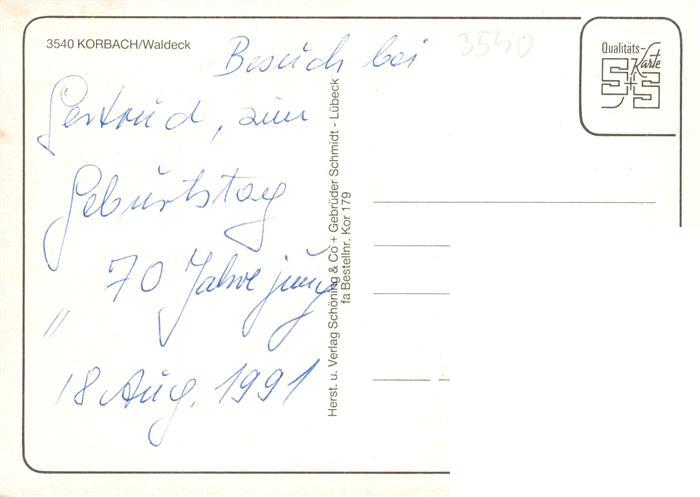 3540 KORBACH/Waldeck
Besuch bei
Gertrud, zum
Geburtstag
70 Jahre jung
"
18 Aug. 1991
3540
Herst. u. Verlag Schöning & Co + Gebrüder Schmidt - Lübeck
fa Bestellnr. Kor 179
Qualitäts-
Karte
S+S